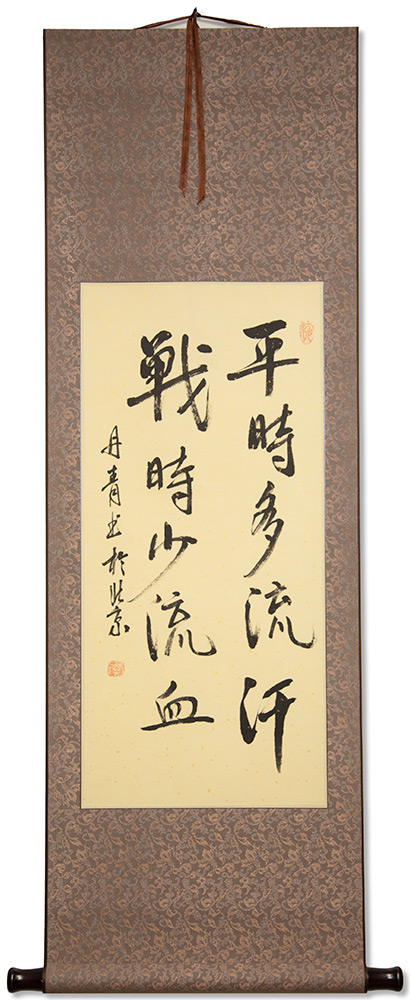 平時多流汗
戰時少流血
丹青书於北京